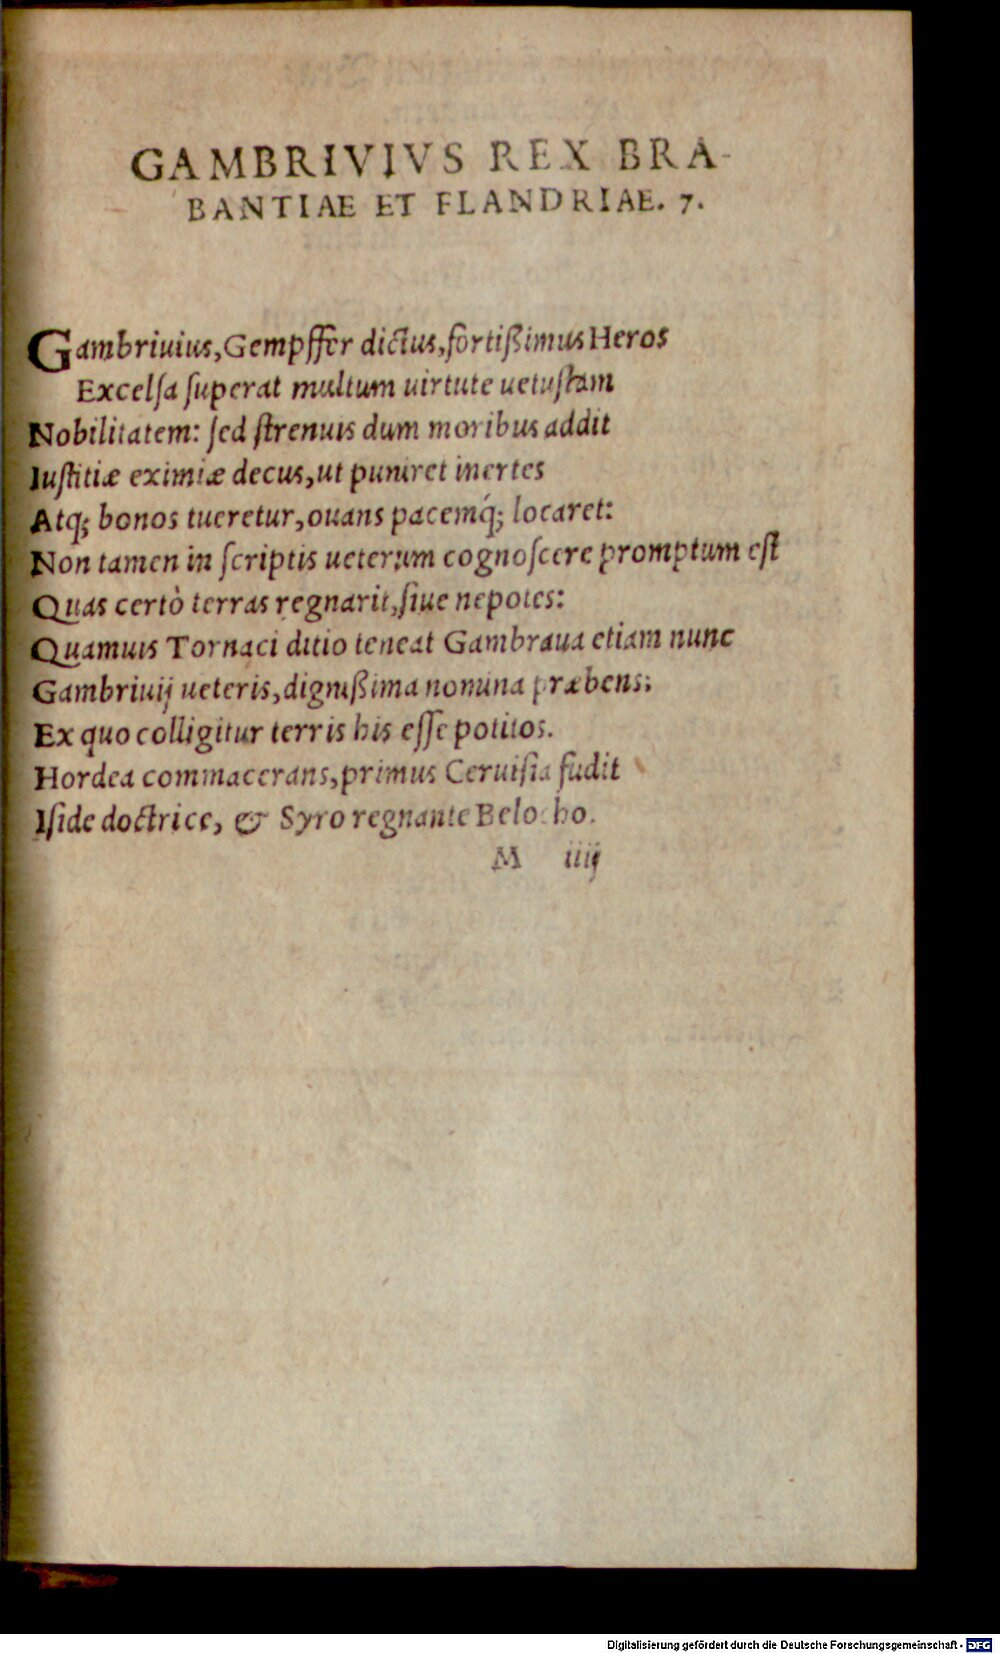 GAMBRIVIVS REX BRA-
BANTIAE ET FLANDRIAE. 7.
Gambriuius, Gempffer dictus, fortißimus Heros
Excelſa ſuperat multum uirtute uetuſtam
Nobilitatem: ſed ſtrenuis dum moribus addit
Iuſtitiæ eximiæ decus, ut puniret inertes
Atq; bonos tueretur, ouans pacemq́; locaret:
Non tamen in ſcriptis ueterum cognoſcere promptum eſt
Quas certò terras regnarit, ſiue nepotes:
Quamuis Tornaci ditio teneat Gambraua etiam nunc
Gambriuij ueteris, dignißima nomina præbens;
Ex quo colligitur terris his eſſe potitos.
Hordea commacerans, primus Ceruiſia fudit
Iſide doctrice, & Syro regnante Belocho.
M iiij
Digitalisierung gefördert durch die Deutsche Forschungsgemeinschaft - DFG